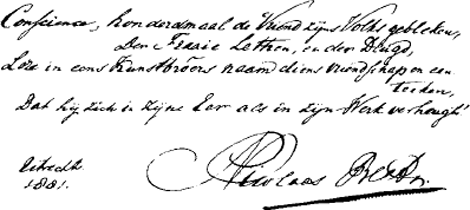 Conscience, honderdmaal de Vriend zijns Volks gebleken,
Den Fraaie Lettren, en der Deugd,
Leze in ons Kunstbroêrs naam diens vriendschap een
teeken,
Dat hij zich in zijne Eer als in zijn Werk verheugt!
Utrecht
1881.
Nicolaas Beets